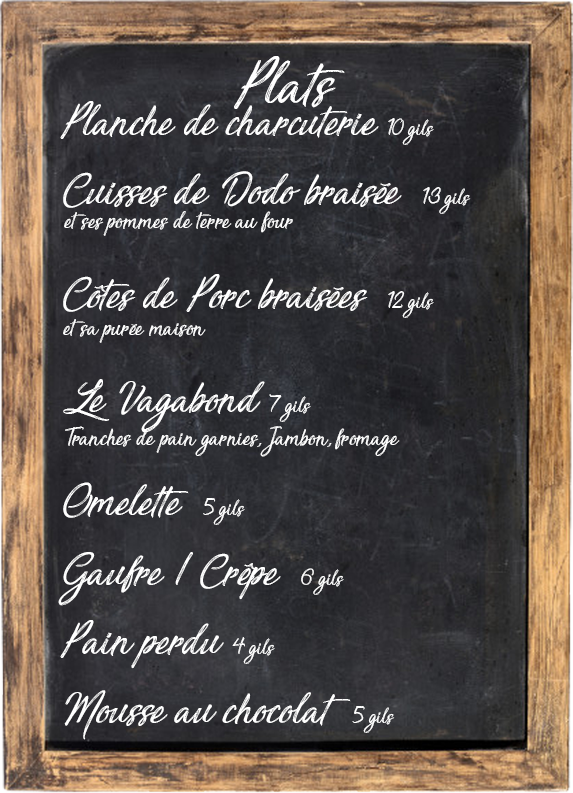 Plats
Planche de charcuterie 10 gils
Cuisses de Dodo braisée 13 gils
et ses pommes de terre au four
Côtes de Porc braisées 12 gils
et sa purée maison
Le Vagabond 7 gils
Tranches de pain garnies, Jambon, fromage
Omelette 5 gils
Gaufre / Crêpe 6 gils
Pain perdu 4 gils
Mousse au chocolat 5 gils